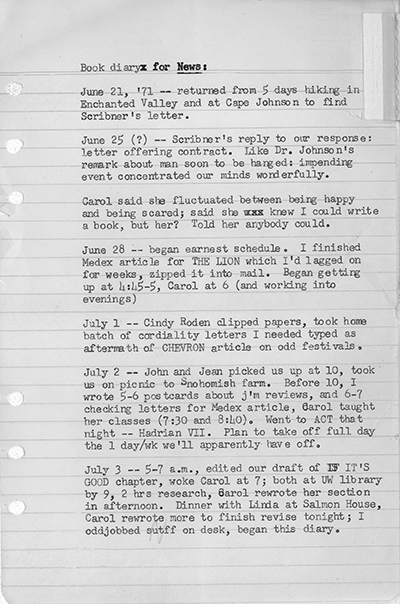 Book diaryx for News:
June 21, '71 -- returned from 5 days hiking in
Enchanted Valley and at Cape Johnson to find
Scribner's letter.
June 25 (?) -- Scribner's reply to our response:
letter offering contract. Like Dr. Johnson's
remark about man soon to be hanged: impending
event concentrated our minds wonderfully.
Carol said she fluctuated between being happy
and being scared; said she wxx knew I could write
a book, but her? Told her anybody could.
June 28 -- began earnest schedule. I finished
Medex article for THE LION which I'd lagged on
for weeks, zipped it into mail. Began getting
up at 4:45-5, Carol at 6 (and working into
evenings)
July 1 -- Cindy Roden clipped papers, took home
batch of cordiality letters I needed typed as
aftermath of CHEVRON article on odd festivals.
July 2 -- John and Jean picked us up at 10, took
us on picnic to Snohomish farm. Before 10, I
wrote 5-6 postcards about j'm reviews, and 6-7
checking letters for Medex article, Carol taught
her classes (7:30 and 8:40). Went to ACT that
night -- Hadrian VII. Plan to take off full day
the 1 day/wk we'll apparently have off.
July 3 -- 5-7 a.m., edited our draft of IF IT'S
GOOD chapter, woke Carol at 7; both at UW library
by 9, 2 hrs research, Carol rewrote her section
in afternoon. Dinner with Linda at Salmon House,
Carol rewrote more to finish revise tonight; I
oddjobbed sutff on desk, began this diary.